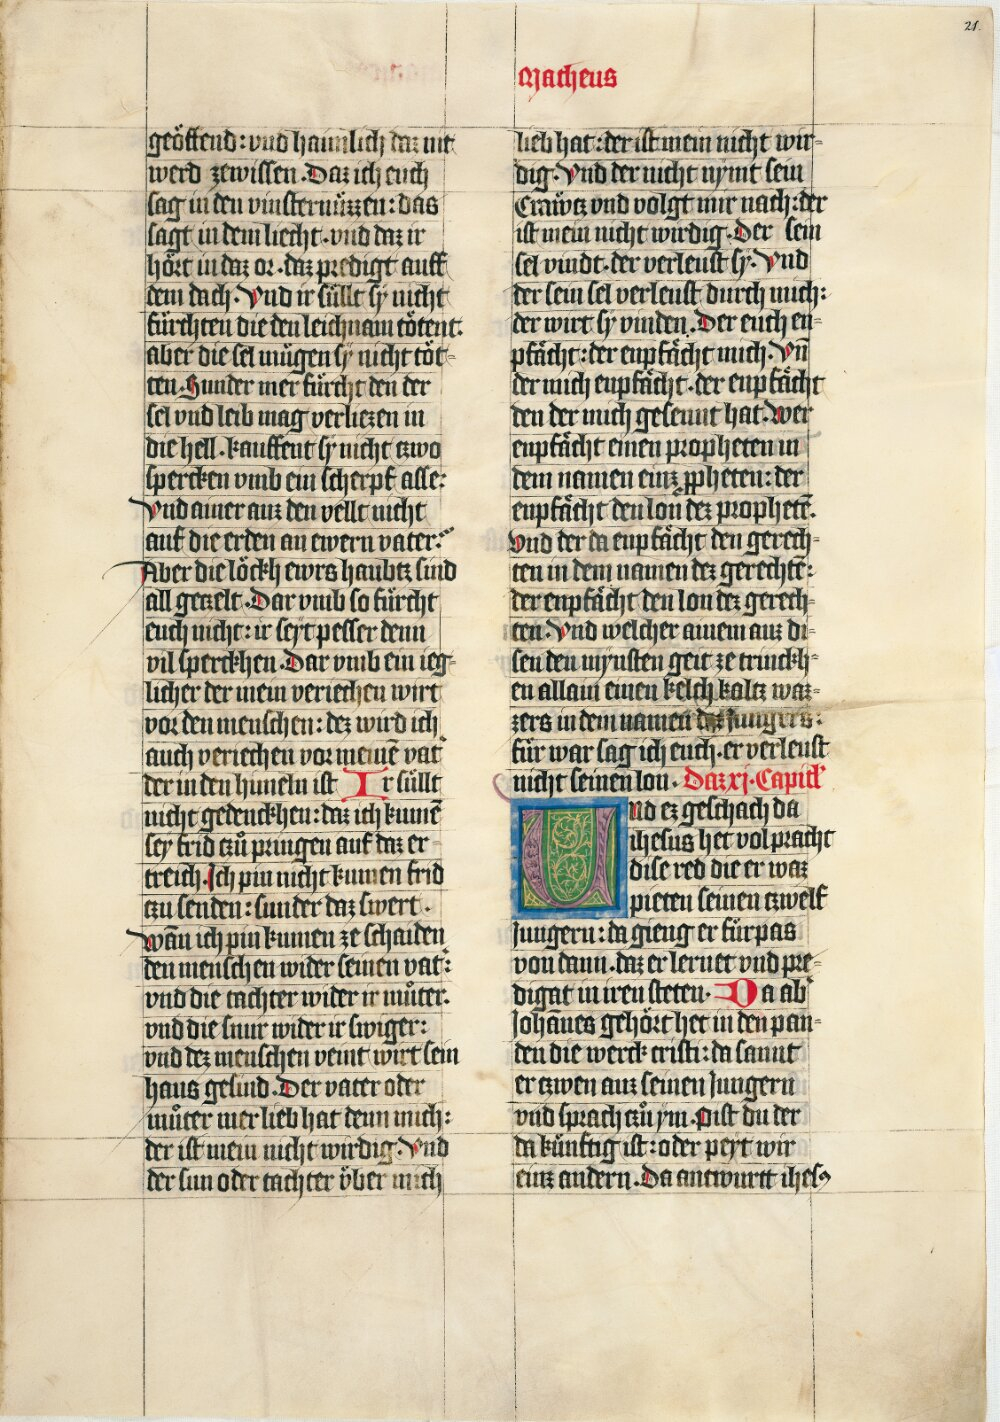 21.
Matheus
geöffend: vnd haimlich daz nit
werd zewissen. Daz ich euch
sag in den vinsternüzzen: das
sagt in dem liecht. vnd daz ir
hört in daz or. daz predigt auff
dem dach. Vnd ir süllt sy nicht
fürchten die den leichnam tötent.
aber die sel mügen sy nicht töt-
ten. Sunder mer fürcht den der
sel vnd leib mag verliezen in
die hell. kauffent sy nicht czwo
spercken vmb ein scherpf asse:
Vnd ainer auz den vellt nicht
auf die erden an ewern vater:
Aber die löckh ewrs haubtz sind
all geczelt. Dar vmb so fürcht
euch nicht: ir seyt pesser denn
vil sperckhen. Dar vmb ein ieg-
licher der mein veriechen wirt
vor den menschen: dez wird ich
auch veriechen vor meinē vat᷑
der in den himeln ist Ir süllt
nicht gedenckhen: daz ich kumē
sey frid czů pringen auf daz er-
treich. Ich pin nicht kumen frid
czu senden: sunder daz swert.
wān ich pin kumen ze schaiden
den menschen wider seinen vat᷑:
vnd die tachter wider ir můter.
vnd die snur wider ir swiger:
vnd dez menschen veint wirt sein
haus gesind. Der vater oder
můter mer lieb hat denn mich:
der ist mein nicht wirdig. Vnd
der sun oder tachter über mich
lieb hat: der ist mein nicht wir-
dig. Vnd der nicht nymt sein
Cräwcz vnd volgt mir nach: der
ist mein nicht wirdig. Der sein
sel vindt. der verleust sy. Vnd
der sein sel verleust durch mich:
der wirt sy vinden. Der euch en-
pfächt: der enpfächt mich. Vn̄
der mich enpfächt. der enpfächt
den der mich gesennt hat. wer
enpfächt einen propheten in
dem namen einz ꝓpheten: der
enpfächt den lon dez prophetē.
Vnd der da enpfächt den gerech-
ten in dem namen dez gerechtē:
der enpfächt den lon dez gerech-
ten. Vnd welcher ainem auz di-
sen den mynsten geit ze trinckh-
en allain einen kelch kaltz waz-
zers in dem namen dez Jungers:
für war sag ich euch. er verleust
nicht seinen lon. Daz xj. Capitl᷑
Und ez geschach da
ihesus het volpracht
dise red die er waz
pieten seinen czwelf
Jungern: da gieng er fürpas
von dann. daz er lernet vnd pre-
digat in iren steten. Da ab᷑
Johānes gehört het in den pan-
den die werck cristi: da sannt
er czwen auz seinen Jungern
vnd sprach czů ym. Pist du der
da künftig ist: oder peyt wir
einz andern. Da antwurtt ihesꝰ